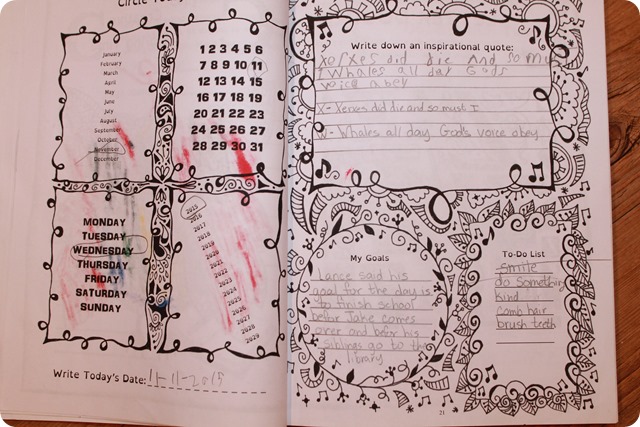 Circle Today
January
February
March
April
May
June
July
August
September
October
November
December
1 2 3 4 5 6
7 8 9 10 11
12 13 14 15
16 17 18 19
20 21 22 23
24 25 26 27
28 29 30 31
MONDAY
TUESDAY
WEDNESDAY
THURSDAY
FRIDAY
SATURDAY
SUNDAY
2015
2016
2017
2018
2019
2020
2021
2022
2023
2024
2025
2026
2027
2028
2029
Write Today's Date: 11-11-2015
Write down an inspirational quote:
Xerxes did die And so mu
Whales all day Gods
voice obey
X- Xerxes did die and so must I
W- Whales all day God's voice obey
My Goals
Lance said his
goal for the day is
to finish school
before Jake comes
over and before his
siblings go to the
library
To-Do List
smile
do something
kind
comb hair
brush teeth
21